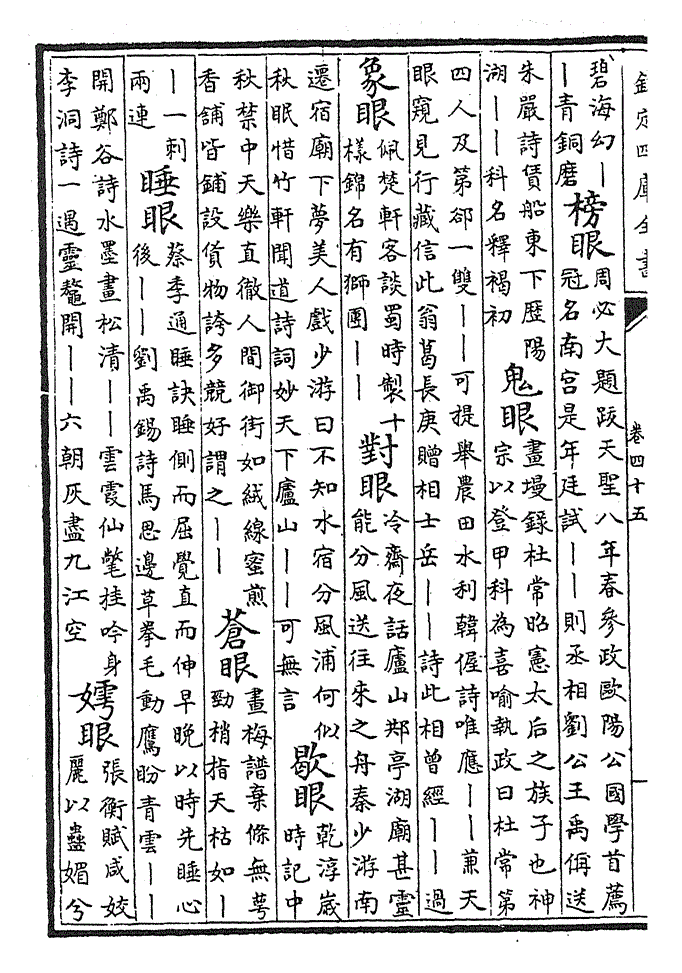 欽定四庫全書
卷四十五
一
碧海幻｜
｜青銅磨
榜眼
周必大題跋天聖八年春參政歐陽公國學首薦
冠名南宮是年廷試｜｜則丞相劉公王禹偁送
朱嚴詩賃船東下歷陽
湖｜｜科名釋褐初
鬼眼
畫墁錄杜常昭憲太后之族子也神
宗以登甲科為喜喻執政曰杜常第
四人及第郤一雙｜｜可提舉農田水利韓偓詩唯應｜｜兼天
眼窺見行藏信此翁葛長庚贈相士岳｜｜詩此相曾經｜｜過
象眼
佩楚軒客談蜀時製十
樣錦名有獅團｜｜
對眼
冷齋夜話廬山䢼亭湖廟甚靈
能分風送往來之舟秦少游南
遷宿廟下夢美人戲少游曰不知水宿分風浦何似
秋眠惜竹軒聞道詩詞妙天下廬山｜｜可無言
歇眼
乾淳歲
時記中
秋禁中天樂直徹人間御街如絨線蜜煎
香舖皆鋪設貨物誇多競好謂之｜｜
蒼眼
畫梅譜棄條無萼
勁梢指天枯如｜
｜一刺
兩連
睡眼
蔡季通睡訣睡側而屈覺直而伸早晚以時先睡心
後｜｜劉禹錫詩馬思邊草拳毛動鷹盼青雲｜｜
開鄭谷詩水墨畫松清｜｜雲霞仙氅挂吟身
李洞詩一遇靈鼇開｜｜六朝灰盡九江空
嫮眼
張衡賦咸姣
麗以蠱媚兮